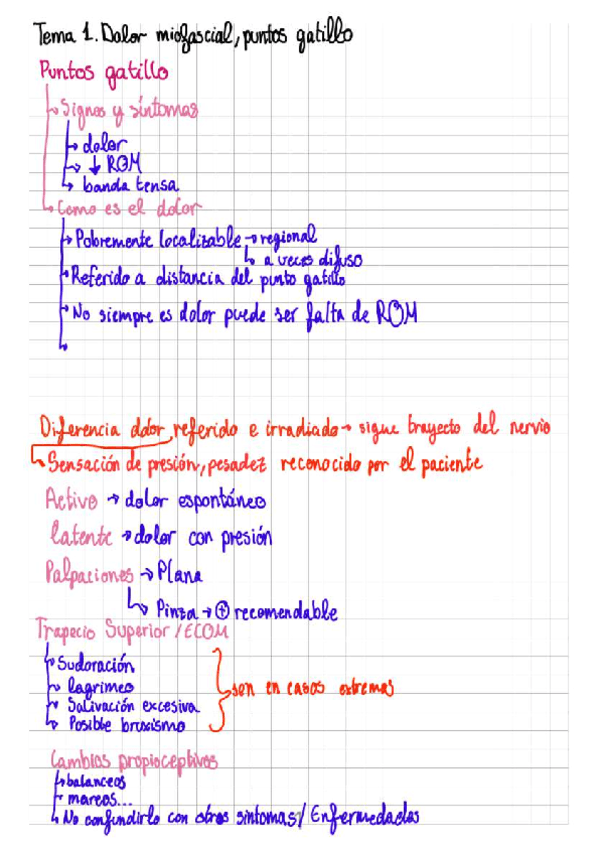 Tema 1. Dolor miofascial, puntos gatillo
Puntos gatillo
↳ Signos y síntomas
↳ dolor
↳ ↓ ROM
↳ banda tensa
↳ Como es el dolor
↳ Pobremente localizable → regional
↳ a veces difuso
↳ Referido a distancia del punto gatillo
↳ No siempre es dolor puede ser falta de ROM
↳
Diferencia dolor referido e irradiado → sigue trayecto del nervio
↳ Sensación de presión, pesadez reconocido por el paciente
Activo → dolor espontáneo
latente → dolor con presión
Palpaciones → Plana
↳ Pinza → ⊕ recomendable
Trapecio Superior / ECOM
↳ Sudoración
↳ lagrimeo
↳ Salivación excesiva
↳ Posible bruxismo
son en casos extremos
Cambios propioceptivos
↳ balanceos
↳ mareos...
↳ No confundirlo con otros síntomas / Enfermedades